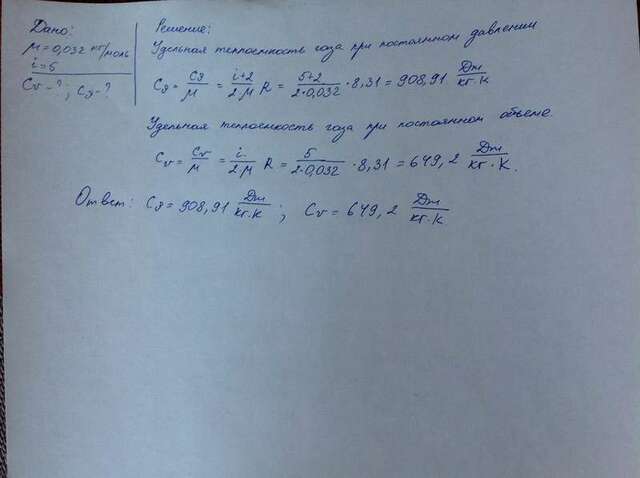 Дано:
μ = 0,032 кг/моль
i = 5
Cv - ? ; Cp - ?
Решение:
Удельная теплоемкость газа при постоянном давлении
Cp = Cp/μ = i+2/2·μ R = 5+2/2·0,032 · 8,31 = 908,91 Дж/кг·К
Удельная теплоемкость газа при постоянном объеме.
Cv = Cv/μ = i/2·μ R = 5/2·0,032 · 8,31 = 649,2 Дж/кг·К.
Ответ: Cp = 908,91 Дж/кг·К ; Cv = 649,2 Дж/кг·К